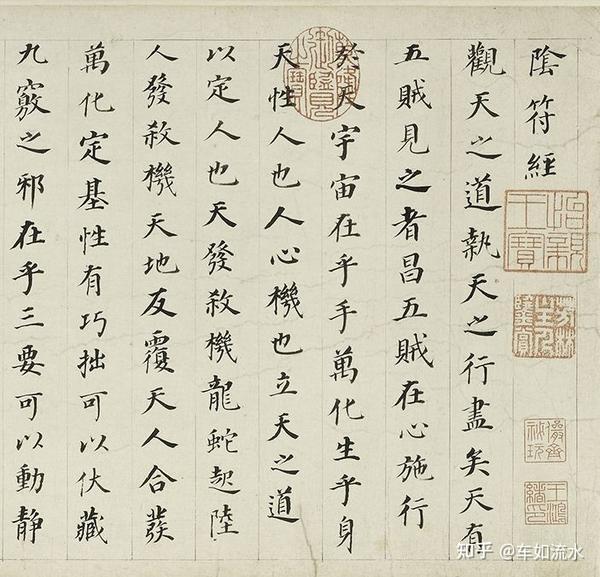 陰符經
觀天之道執天之行盡矣天有
五賊見之者昌五賊在心施行
於天宇宙在乎手萬化生乎身
天性人也人心機也立天之道
以定人也天發殺機龍蛇起陸
人發殺機天地反覆天人合發
萬化定基性有巧拙可以伏藏
九竅之邪在乎三要可以動静
怡親王寶
儼齋秘玩
王鴻緒印
知乎 @车如流水